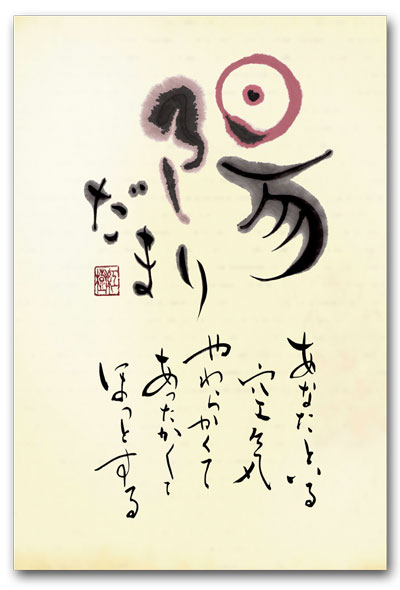 陽だまり
あなたといる
空気
やわらかくて
あったかくて
ほっとする